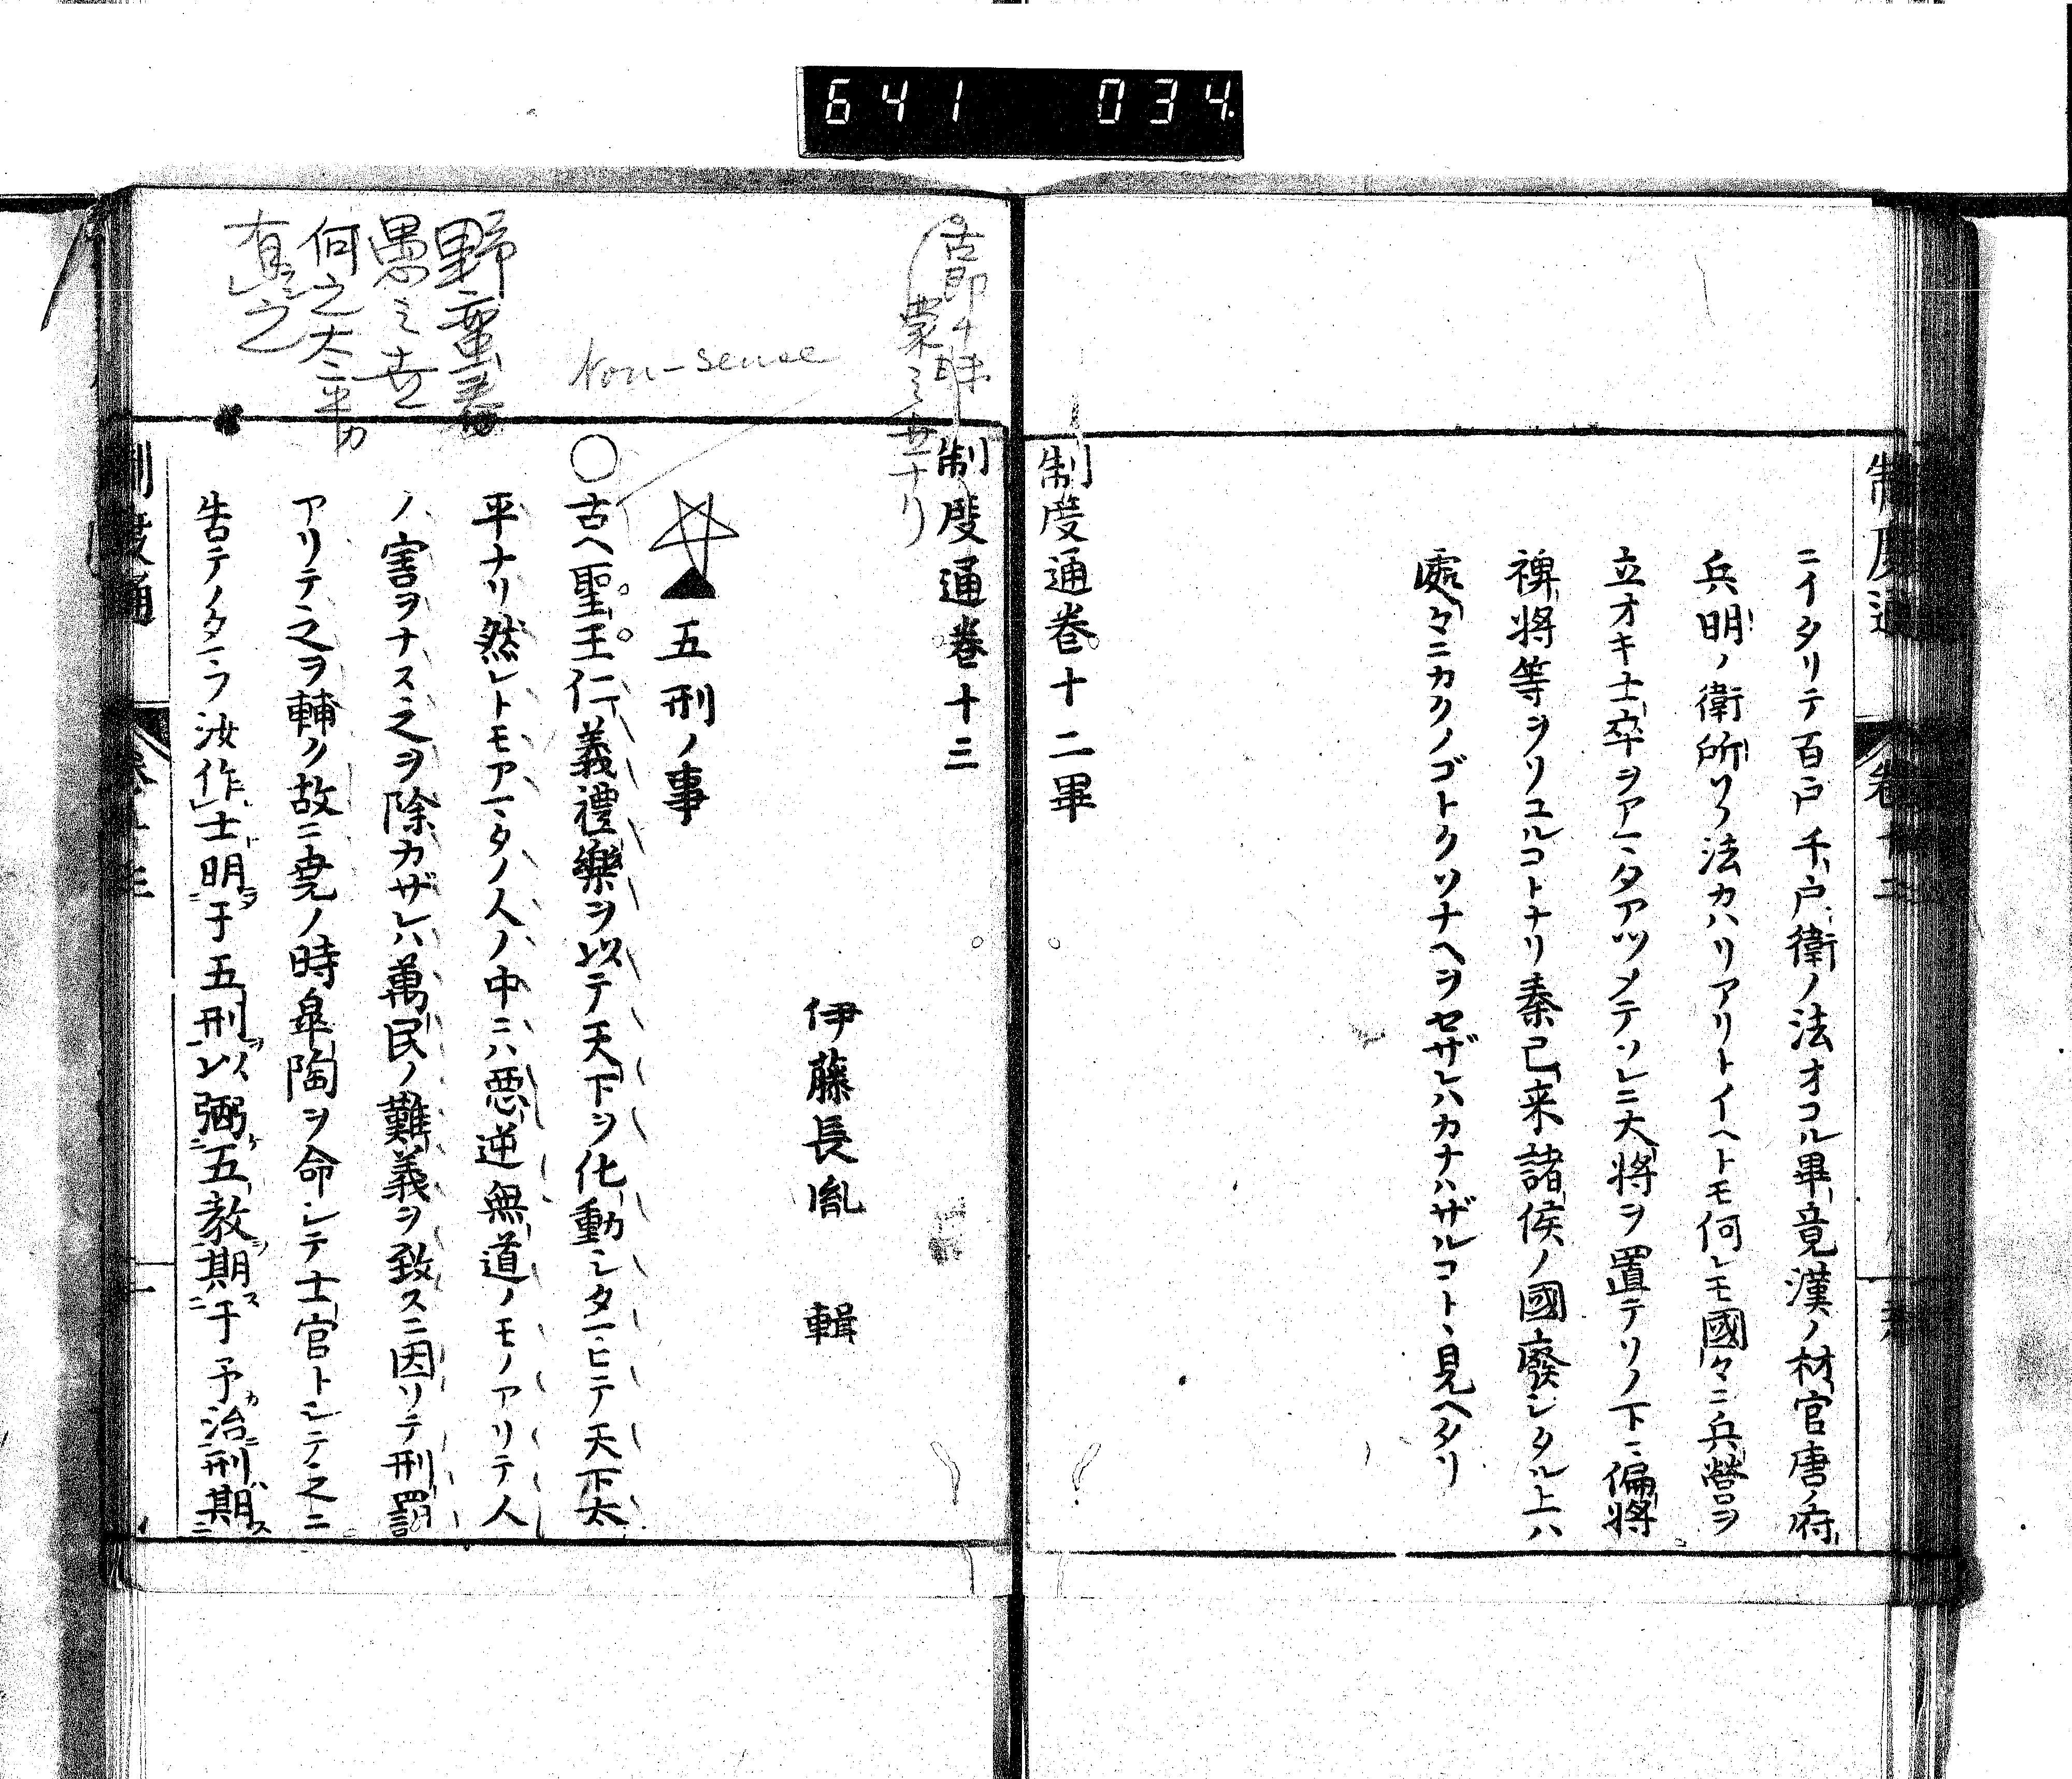 641 034
ニイタリテ百戸千戸衛ノ法オコル畢竟漢ノ材官唐ノ府
兵明ノ衛所ソノ法カハリアリトイヘトモ何レモ國々ニ兵營ヲ
立オキ士卒ヲアマタアツメテソレニ大將ヲ置テソノ下ニ偏將
裨將等ヲソユルコトナリ秦已来諸侯ノ國廢シタル上ハ
處々ニカクノゴトクソナヘヲセザレハカナハザルコトヽ見ヘタリ
制度通巻十二畢
制度通巻十三
伊藤長胤 輯
五刑ノ事
○古ヘ聖王仁義禮樂ヲ以テ天下ヲ化動シタマヒテ天下太
平ナリ然レトモアマタノ人ノ中ニハ悪逆無道ノモノアリテ人
ノ害ヲナス之ヲ除カザレハ萬民ノ難義ヲ致スニ因ソテ刑罰
アリテ之ヲ輔ク故ニ堯ノ時皐陶ヲ命シテ士官トシテ之ニ
告テノタマフ汝作士明于五刑以弼五教期于予治刑期
Non-sense
野蛮
愚之
何之太平カ
有之
制度通